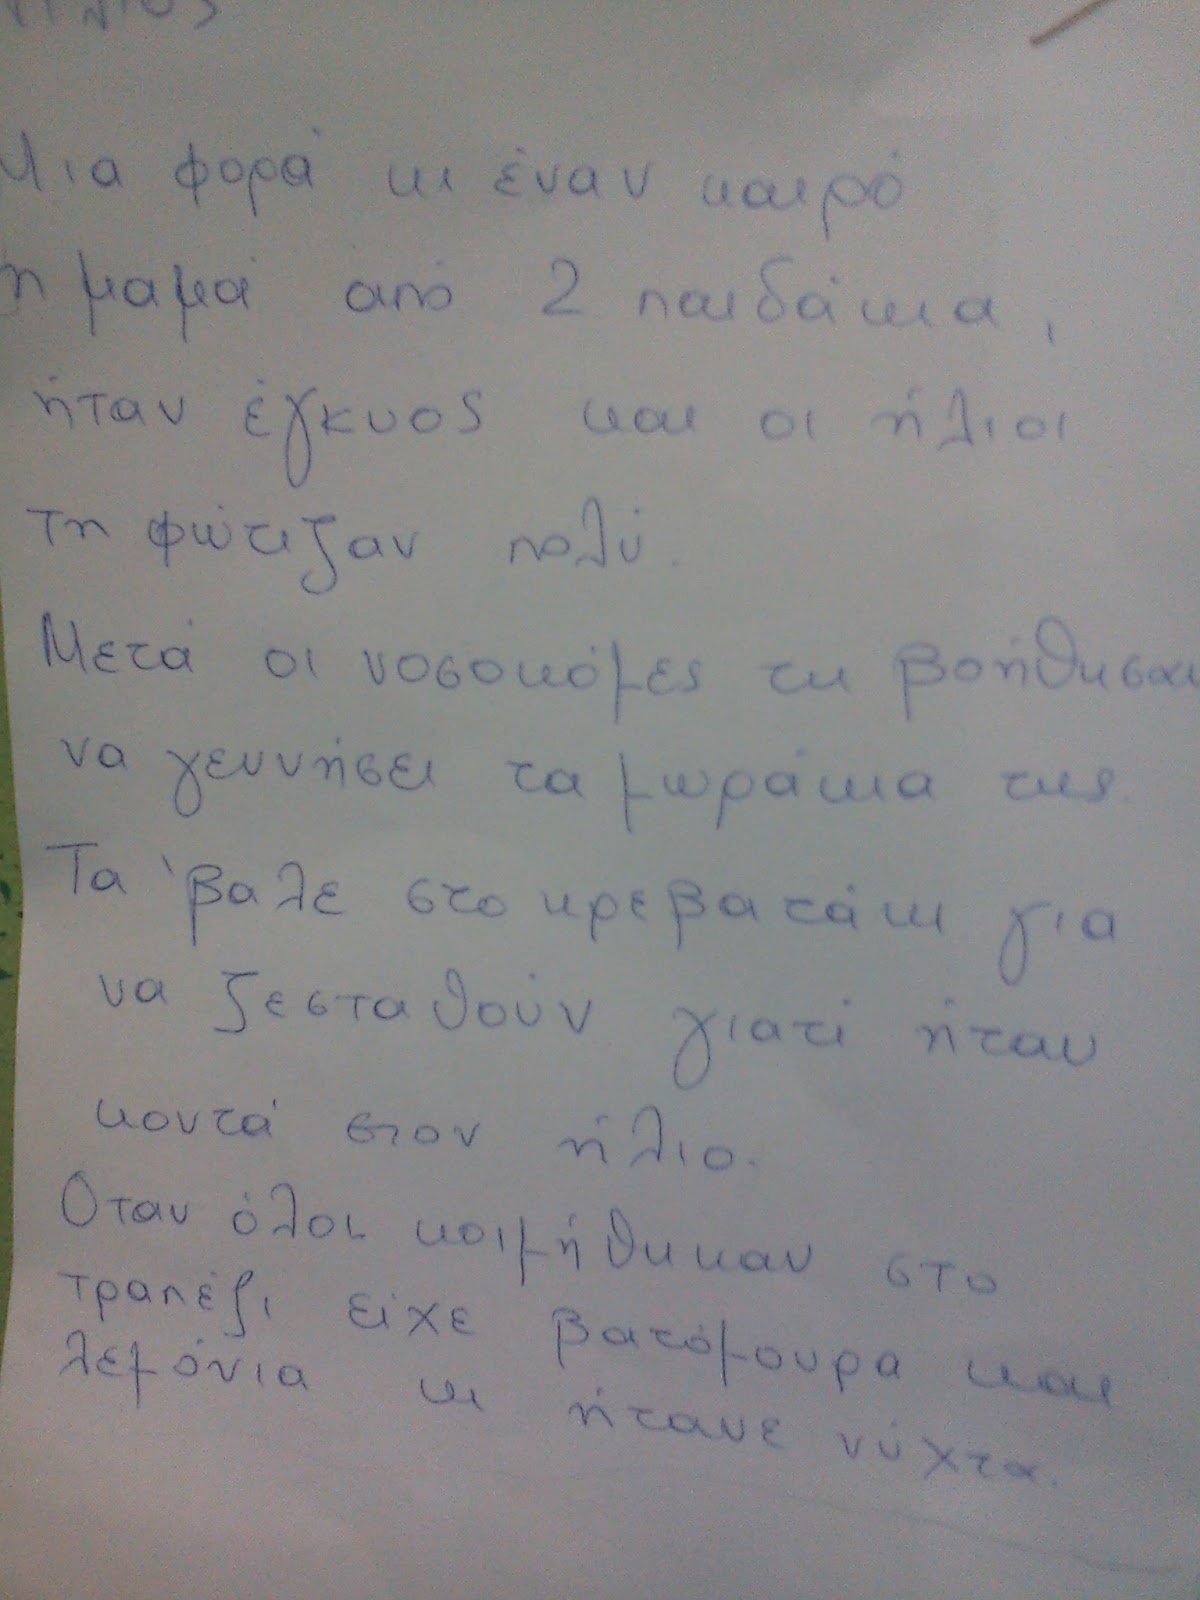 Μια φορά κι έναν καιρό
η μαμά από 2 παιδάκια,
ήταν έγκυος και οι ήλιοι
τη φώτιζαν πολύ.
Μετά οι νοσοκόμες τη βοήθησαν
να γεννήσει τα μωράκια της.
Τα 'βαλε στο κρεβατάκι για
να ζεσταθούν γιατί ήταν
κοντά στον ήλιο.
Όταν όλοι κοιμήθηκαν στο
τραπέζι είχε βατόμουρα και
λεμόνια κι ήτανε νύχτα.